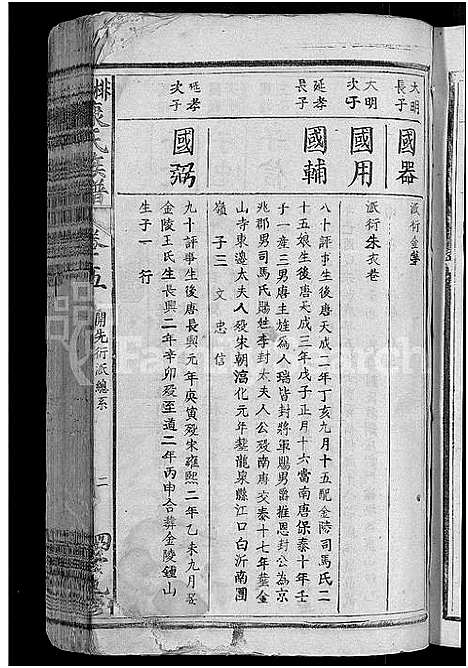 大明長子
國器
派衍金
大明次子
國用
派衍朱衣巷
延孝長子
國輔
八十評事生後唐天成二年丁亥九月十五配金陵司馬氏二
十五娘生後唐天成三年戊子正月十六當南唐保泰十年壬
子一產三男唐主旌為人瑞皆封將軍賜男爵推恩封公為京
兆郡男司馬氏賜姓李封太夫人公殁南唐交泰十七年塟金
山寺東邊太夫人殁宋朝淯化元年塟龍泉縣江口白沂南團
嶺子三 文 忠 信
延孝次子
國弼
九十評事生後唐長興元年庚寅殁宋雍熙二年乙未九月娶
金陵王氏生長興二年辛卯殁至道二年丙申合葬金陵鍾山
生子一 行
氏族譜
卷十五
開先衍派總系
二